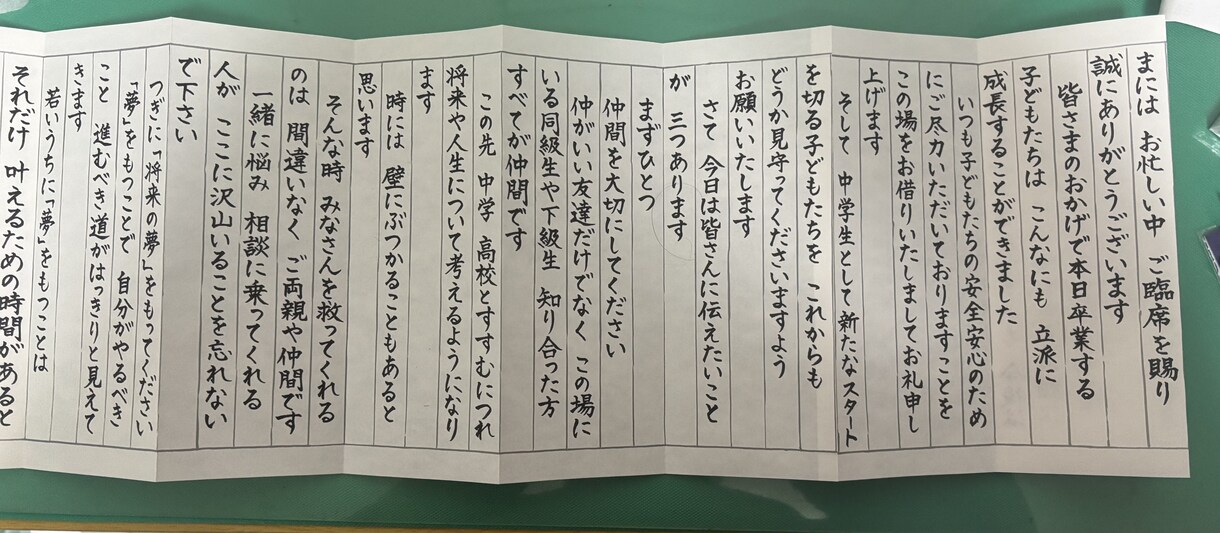 まには お忙しい中 ご臨席を賜り
誠にありがとうございます
皆さまのおかげで本日卒業する
子どもたちは こんなにも 立派に
成長することができました
いつも子どもたちの安全安心のため
にご尽力いただいておりますことを
この場をお借りいたしましてお礼申し
上げます
そして 中学生として新たなスタート
を切る子どもたちを これからも
どうか見守ってくださいますよう
お願いいたします
さて 今日は皆さんに伝えたいこと
が 三つあります
まずひとつ
仲間を大切にしてください
仲がいい友達だけでなく この場に
いる同級生や下級生 知り合った方
すべてが仲間です
この先 中学 高校とすすむにつれ
将来や人生について考えるようになり
ます
時には 壁にぶつかることもあると
思います
そんな時 みなさんを救ってくれる
のは 間違いなく ご両親や仲間です
一緒に悩み 相談に乗ってくれる
人が ここに沢山いることを忘れない
で下さい
つぎに「将来の夢」をもってください
「夢」をもつことで 自分がやるべき
こと 進むべき道がはっきりと見えて
きます
若いうちに「夢」をもつことは
それだけ 叶えるための時間があると